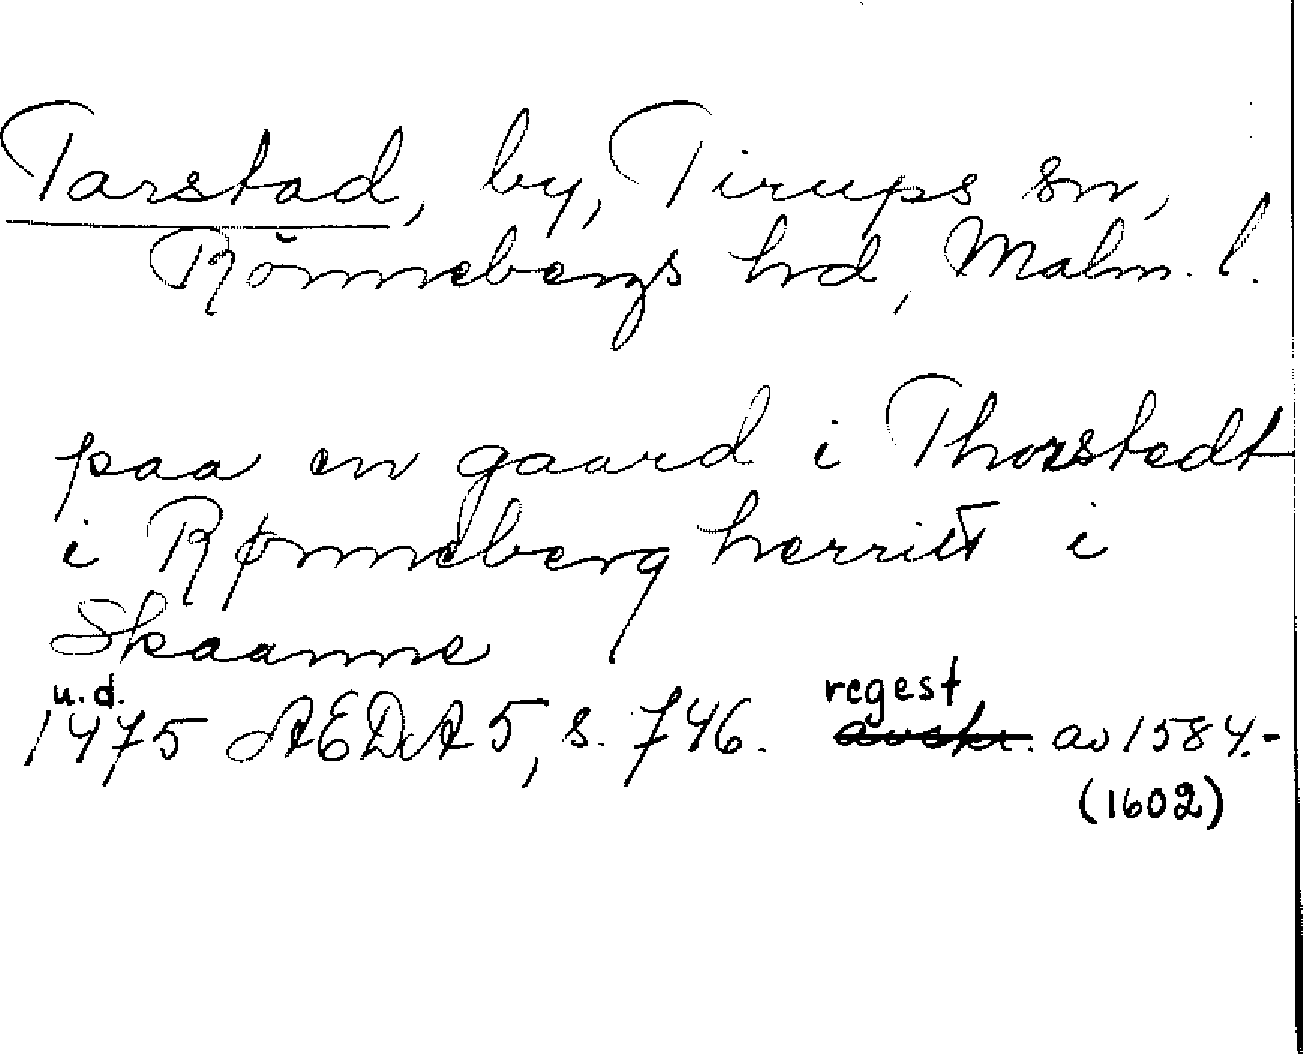 Tarstad, by, Tirups sn,
Rönnebergs hd, Malm. l.
paa en gaard i Thorstedt
i Rønneberg herritt i
Skaanne
u.d. regest
1475 AEDA 5, s. 746. avskr. av 1584.-
(1602)